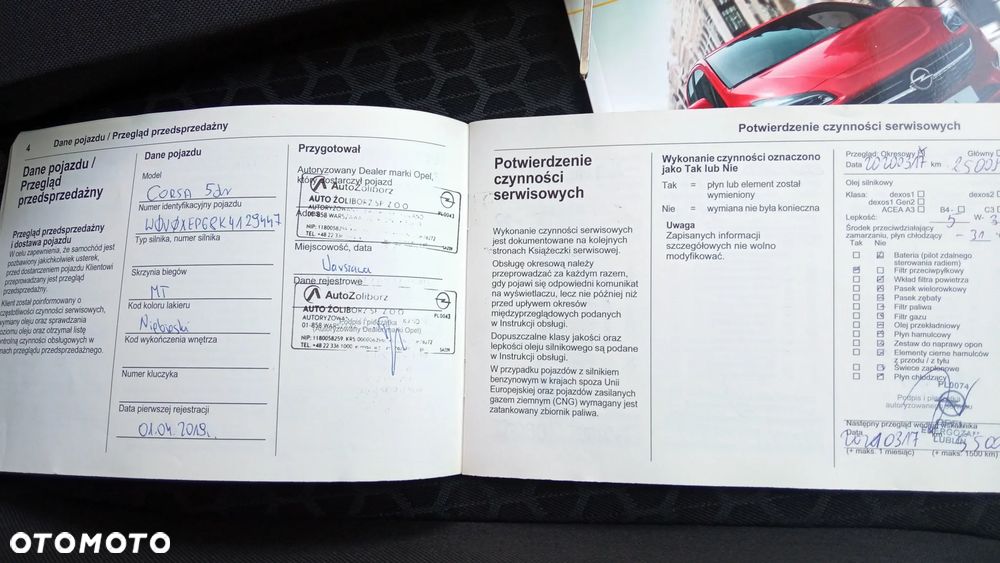 4
Dane pojazdu / Przegląd przedsprzedażny
Dane pojazdu /
Przegląd
przedsprzedażny
Przegląd przedsprzedażny
i dostawa pojazdu
W celu zapewnienia, że samochód jest
pozbawiony jakichkolwiek usterek,
przed dostarczeniem pojazdu Klientowi
przeprowadzany jest przegląd
przedsprzedażny.
Klient został poinformowany o
częstotliwości czynności serwisowych,
wymiany oleju oraz sprawdzania
poziomu oleju oraz otrzymał listę
kontrolną czynności obsługowych w
ramach przeglądu przedsprzedażnego.
Dane pojazdu
Model
CORSA 5dr
Numer identyfikacyjny pojazdu
W0V0XEP6RK4129447
Typ silnika, numer silnika
Skrzynia biegów
MT
Kod koloru lakieru
Niebieski
Kod wykończenia wnętrza
Numer kluczyka
Data pierwszej rejestracji
01.04.2019r.
Przygotował
Autoryzowany Dealer marki Opel,
który dostarczył pojazd
AutoŻoliborz
AUTO ŻOLIBORZ SP. Z O O
Miejscowość, data
Warszawa
Dane rejestrowe
AutoŻoliborz
AUTO ŻOLIBORZ SP. Z O O
Podpis i pieczątka
(Autoryzowany Dealer marki Opel)
Potwierdzenie czynności serwisowych
Potwierdzenie
czynności
serwisowych
Wykonanie czynności serwisowych
jest dokumentowane na kolejnych
stronach Książeczki serwisowej.
Obsługę okresową należy
przeprowadzać za każdym razem,
gdy pojawi się odpowiedni komunikat
na wyświetlaczu, lecz nie później niż
przed upływem okresów
międzyprzeglądowych podanych
w Instrukcji obsługi.
Dopuszczalne klasy jakości oraz
lepkości oleju silnikowego są podane
w Instrukcji obsługi.
W przypadku pojazdów z silnikiem
benzynowym w krajach spoza Unii
Europejskiej oraz pojazdów zasilanych
gazem ziemnym (CNG) wymagany jest
zatankowany zbiornik paliwa.
Wykonanie czynności oznaczono
jako Tak lub Nie
Tak = płyn lub element został
wymieniony
Nie = wymiana nie była konieczna
Uwaga
Zapisanych informacji
szczegółowych nie wolno
modyfikować.
Przegląd: Okresowy Główny
Data 20200317 km
Olej silnikowy
Klasa: dexos1 dexos2
dexos1 Gen2
ACEA A3 B4- C3
Lepkość: 5 W-
Środek przeciwdziałający
zamarzaniu, płyn chłodzący -31
Tak Nie
Bateria (pilot zdalnego
sterowania radiem)
Filtr przeciwpyłkowy
Wkład filtra powietrza
Pasek wielorowkowy
Pasek zębaty
Filtr paliwa
Filtr gazu
Olej przekładniowy
Płyn hamulcowy
Zestaw do naprawy opon
Elementy cierne hamulców
z przodu / z tyłu
Świece zapłonowe
Płyn chłodzący
PL0074
Podpis i pieczątka
autoryzowanego
LUBLIN
Następny przegląd według
Data
20210317
(+ maks. 1 miesiąc) (+ maks. 1500 km)
OTOMOTO